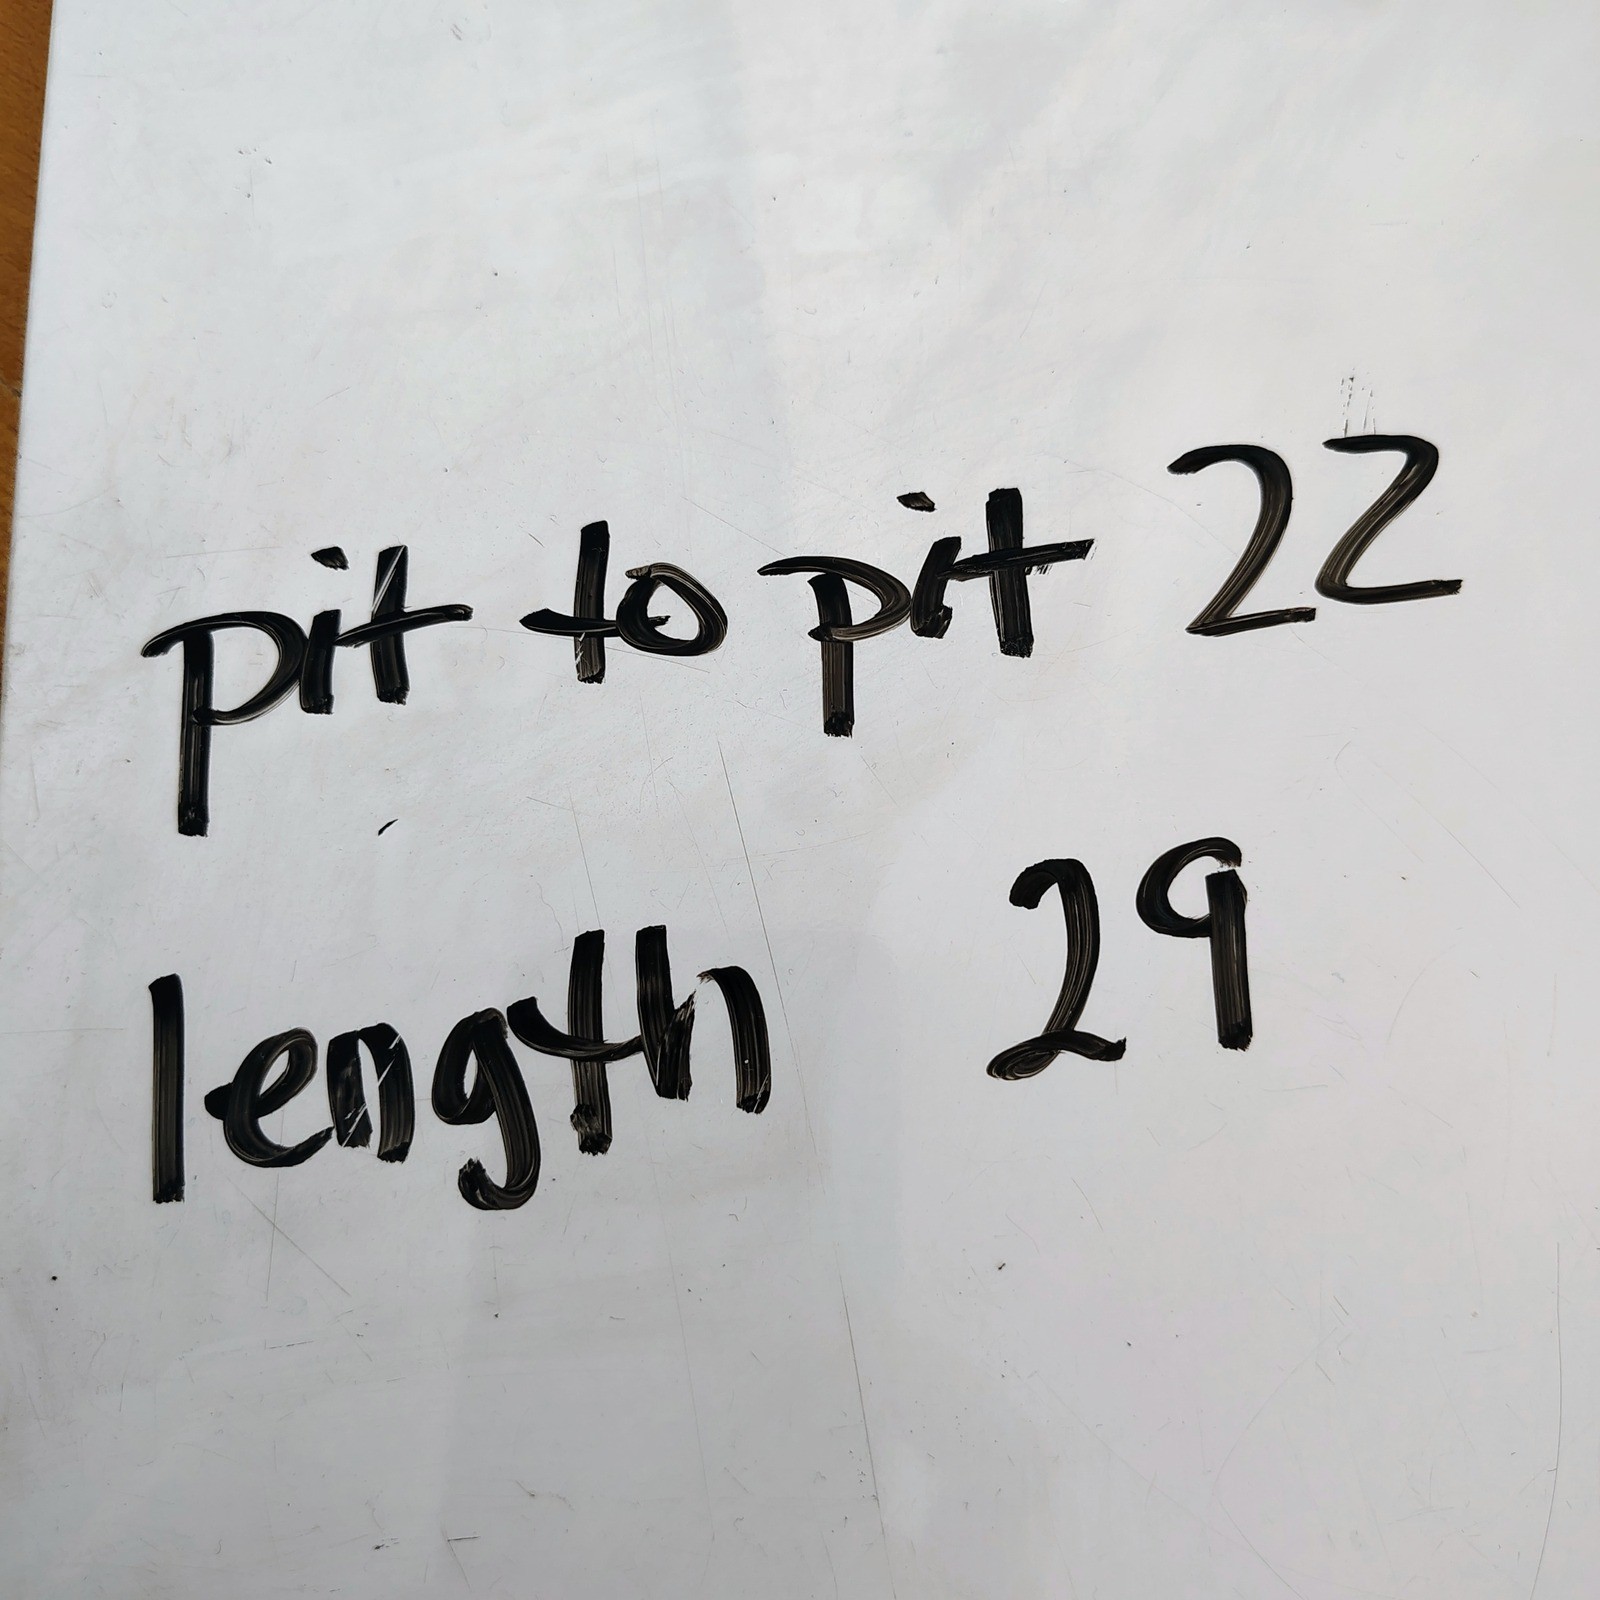 pit to pit 22
length 29